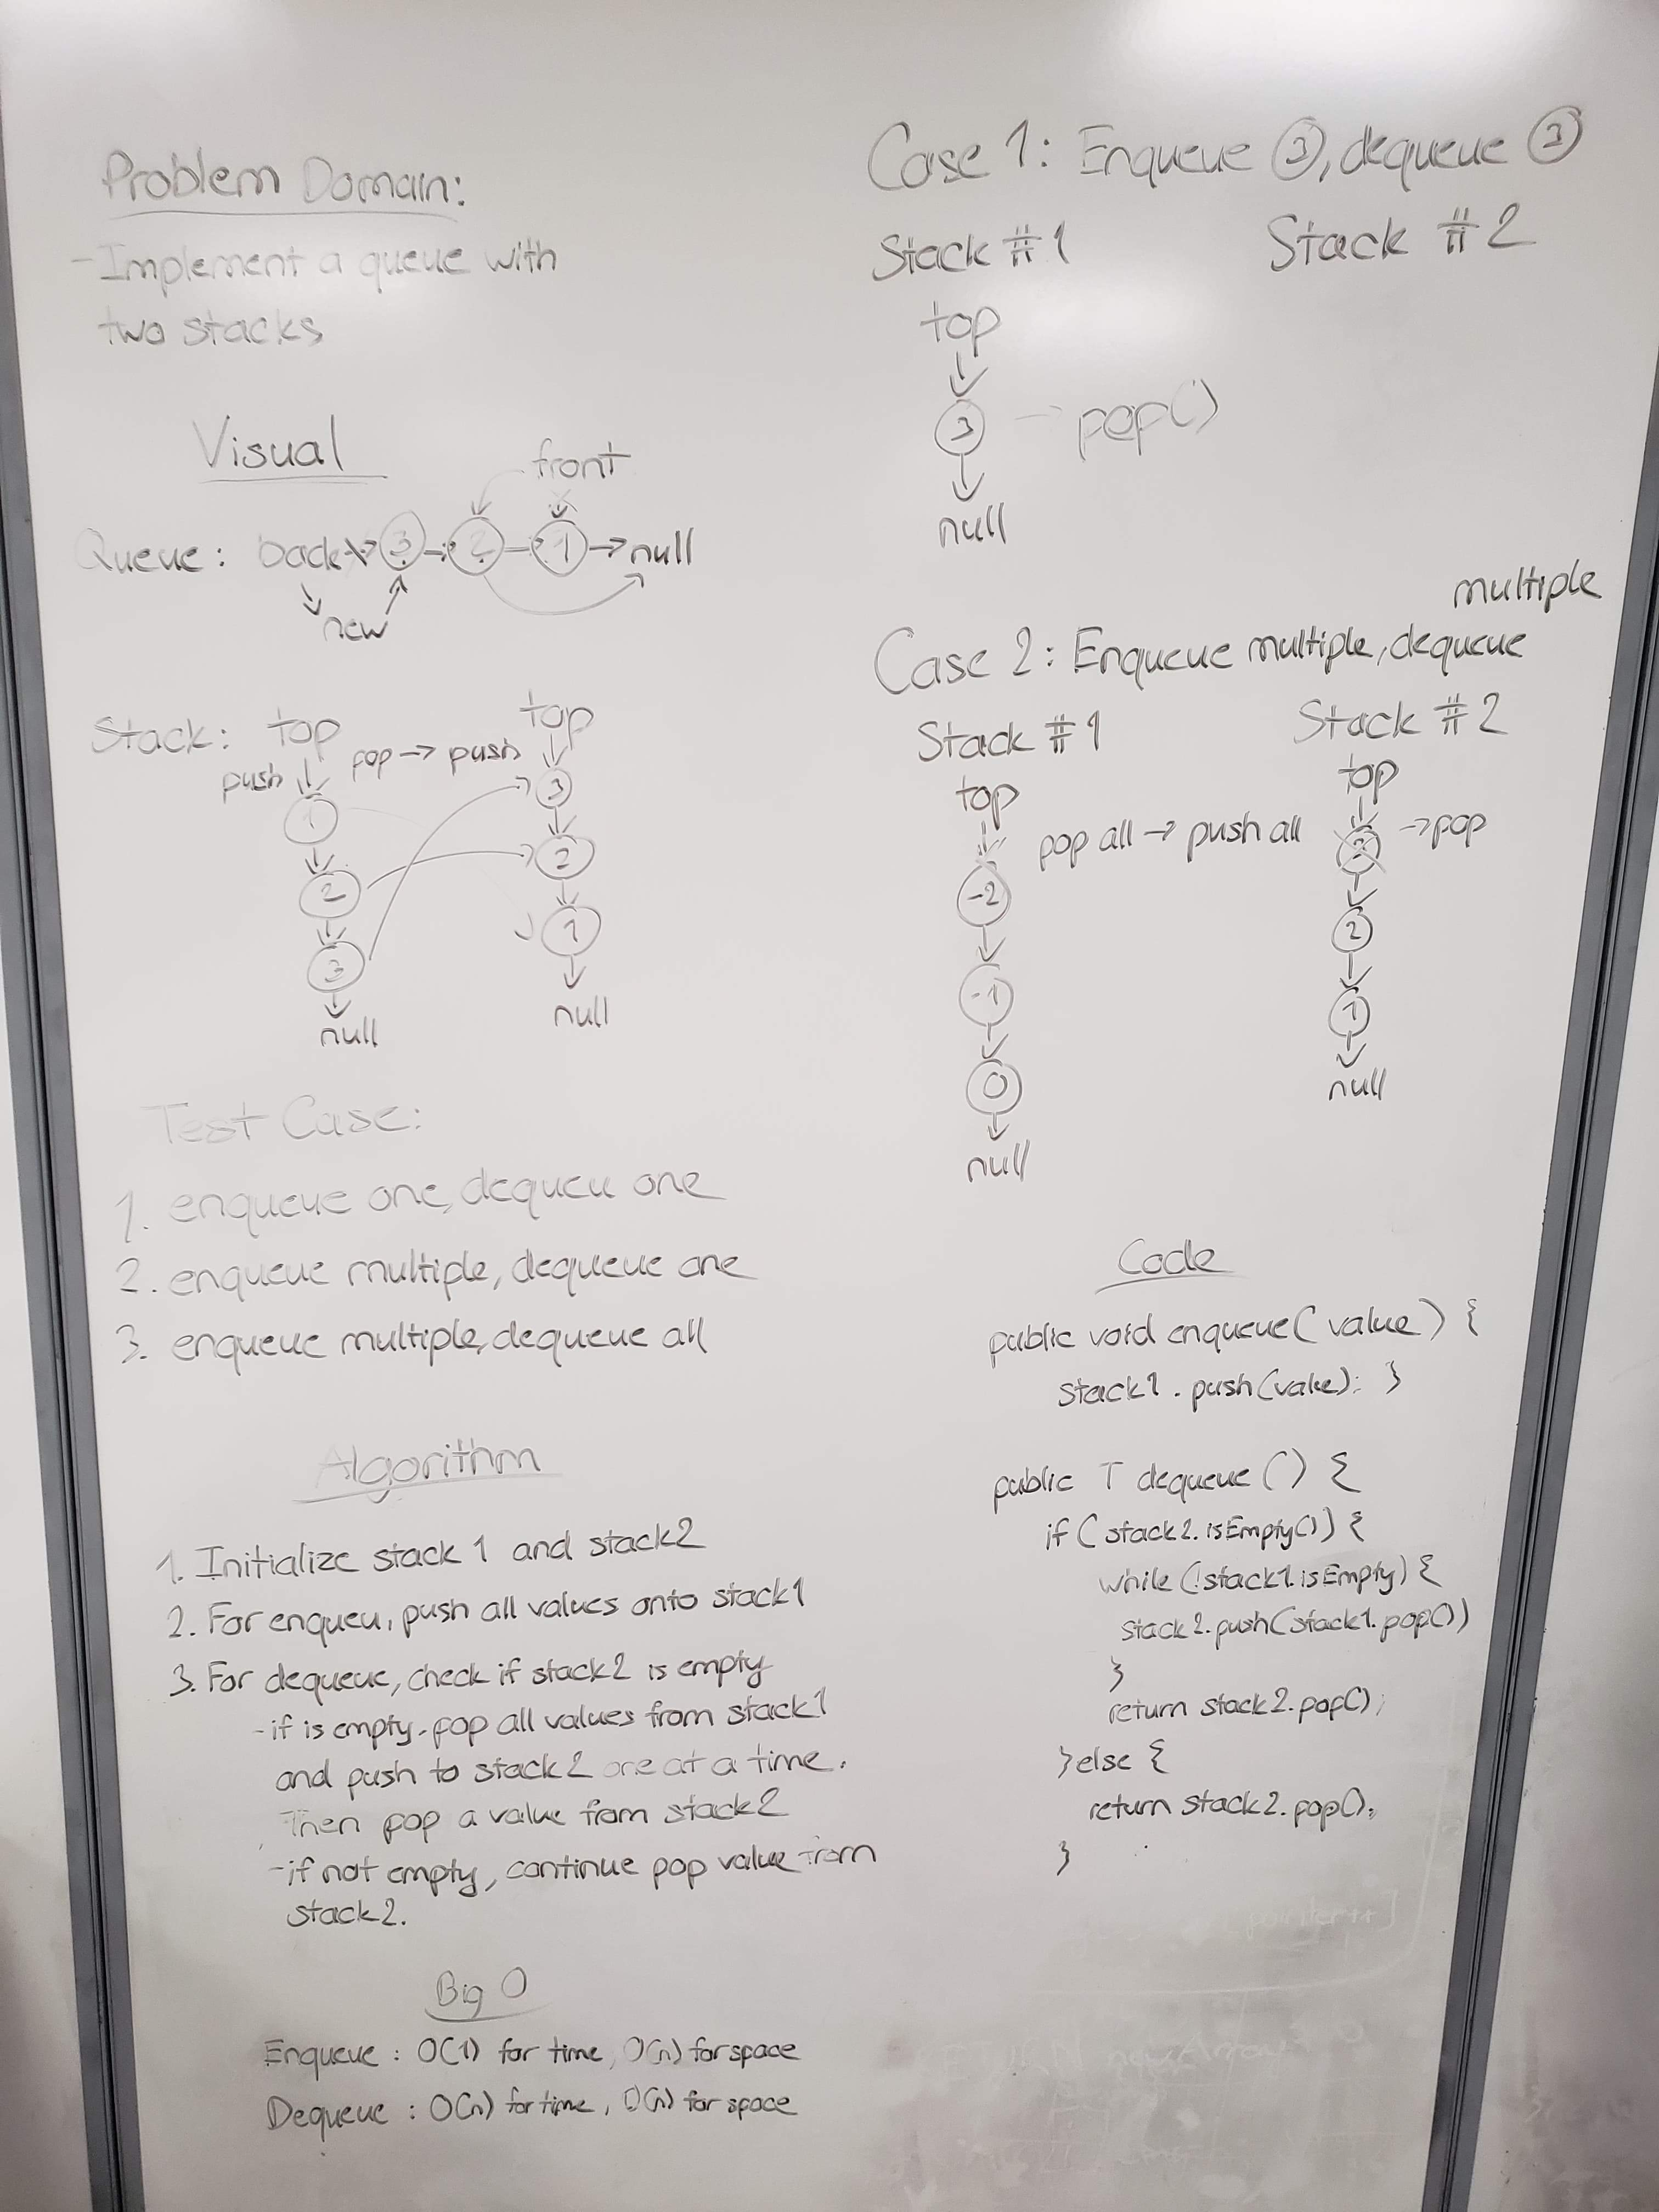 Problem Domain:
- Implement a queue with
two stacks
Visual
front
Queue: back → 3 → 2 → 1 → null
new
Stack: top top
push pop → push
1 3
2 2
3 1
null null
Test Case:
1. enqueue one, dequeu one
2. enqueue multiple, dequeue one
3. enqueue multiple, dequeue all
Algorithm
1. Initialize stack 1 and stack2
2. For enqueu, push all values onto stack1
3. For dequeue, check if stack2 is empty
- if is empty. pop all values from stack1
and push to stack2 one at a time.
Then pop a value from stack2
- if not empty, continue pop value from
stack2.
Big O
Enqueue : O(1) for time, O(n) for space
Dequeue : O(n) for time, O(n) for space
Case 1: Enqueue 3, dequeue 3
Stack #1 Stack #2
top
3 → pop()
null
multiple
Case 2: Enqueue multiple, dequeue
Stack #1 Stack #2
top top
pop all → push all → pop
-2 2
-1 1
0 null
null
Code
public void enqueue( value ) {
stack1 . push(value); }
public T dequeue () {
if ( stack2. isEmpty()) {
while (!stack1.isEmpty) {
stack2.push(stack1.pop())
}
return stack2.pop();
}else {
return stack2.pop();
}